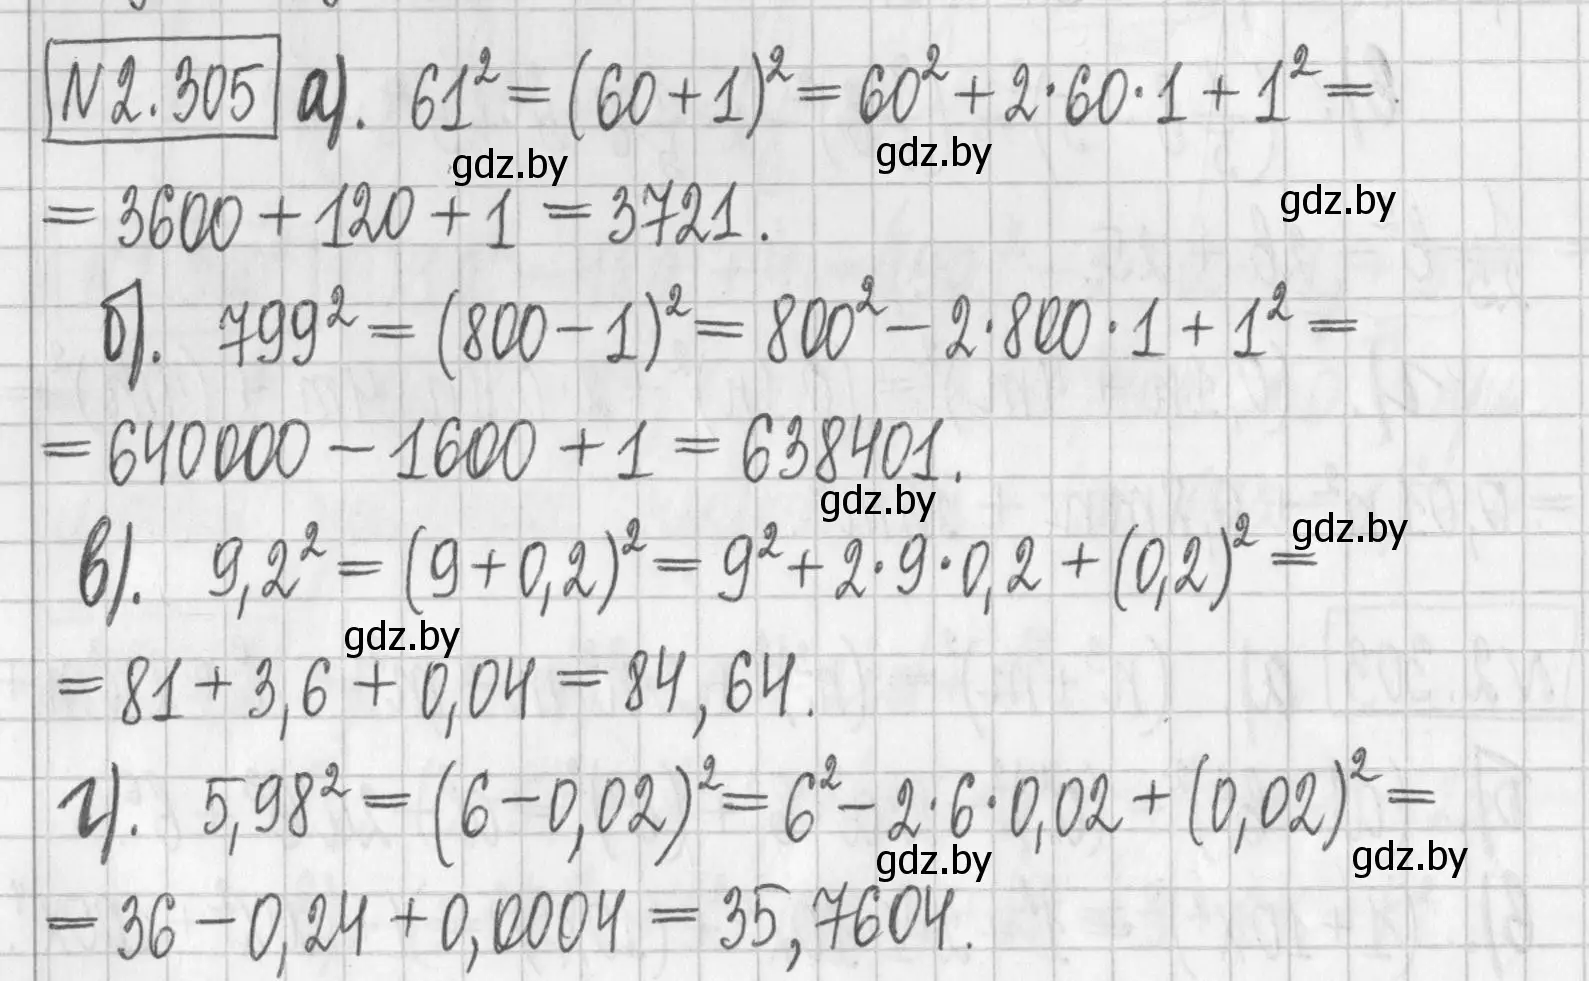 N2.305 а). 61² = (60 + 1)² = 60² + 2·60·1 + 1² =
gdz.by gdz.by
gdz.by
= 3600 + 120 + 1 = 3721.
б). 799² = (800 - 1)² = 800² - 2·800·1 + 1² =
= 640000 - 1600 + 1 = 638401.
gdz.by
gdz.by
в). 9,2² = (9 + 0,2)² = 9² + 2·9·0,2 + (0,2)² =
gdz.by
= 81 + 3,6 + 0,04 = 84,64.
г). 5,98² = (6 - 0,02)² = 6² - 2·6·0,02 + (0,02)² =
gdz.by gdz.by
= 36 - 0,24 + 0,0004 = 35,7604.